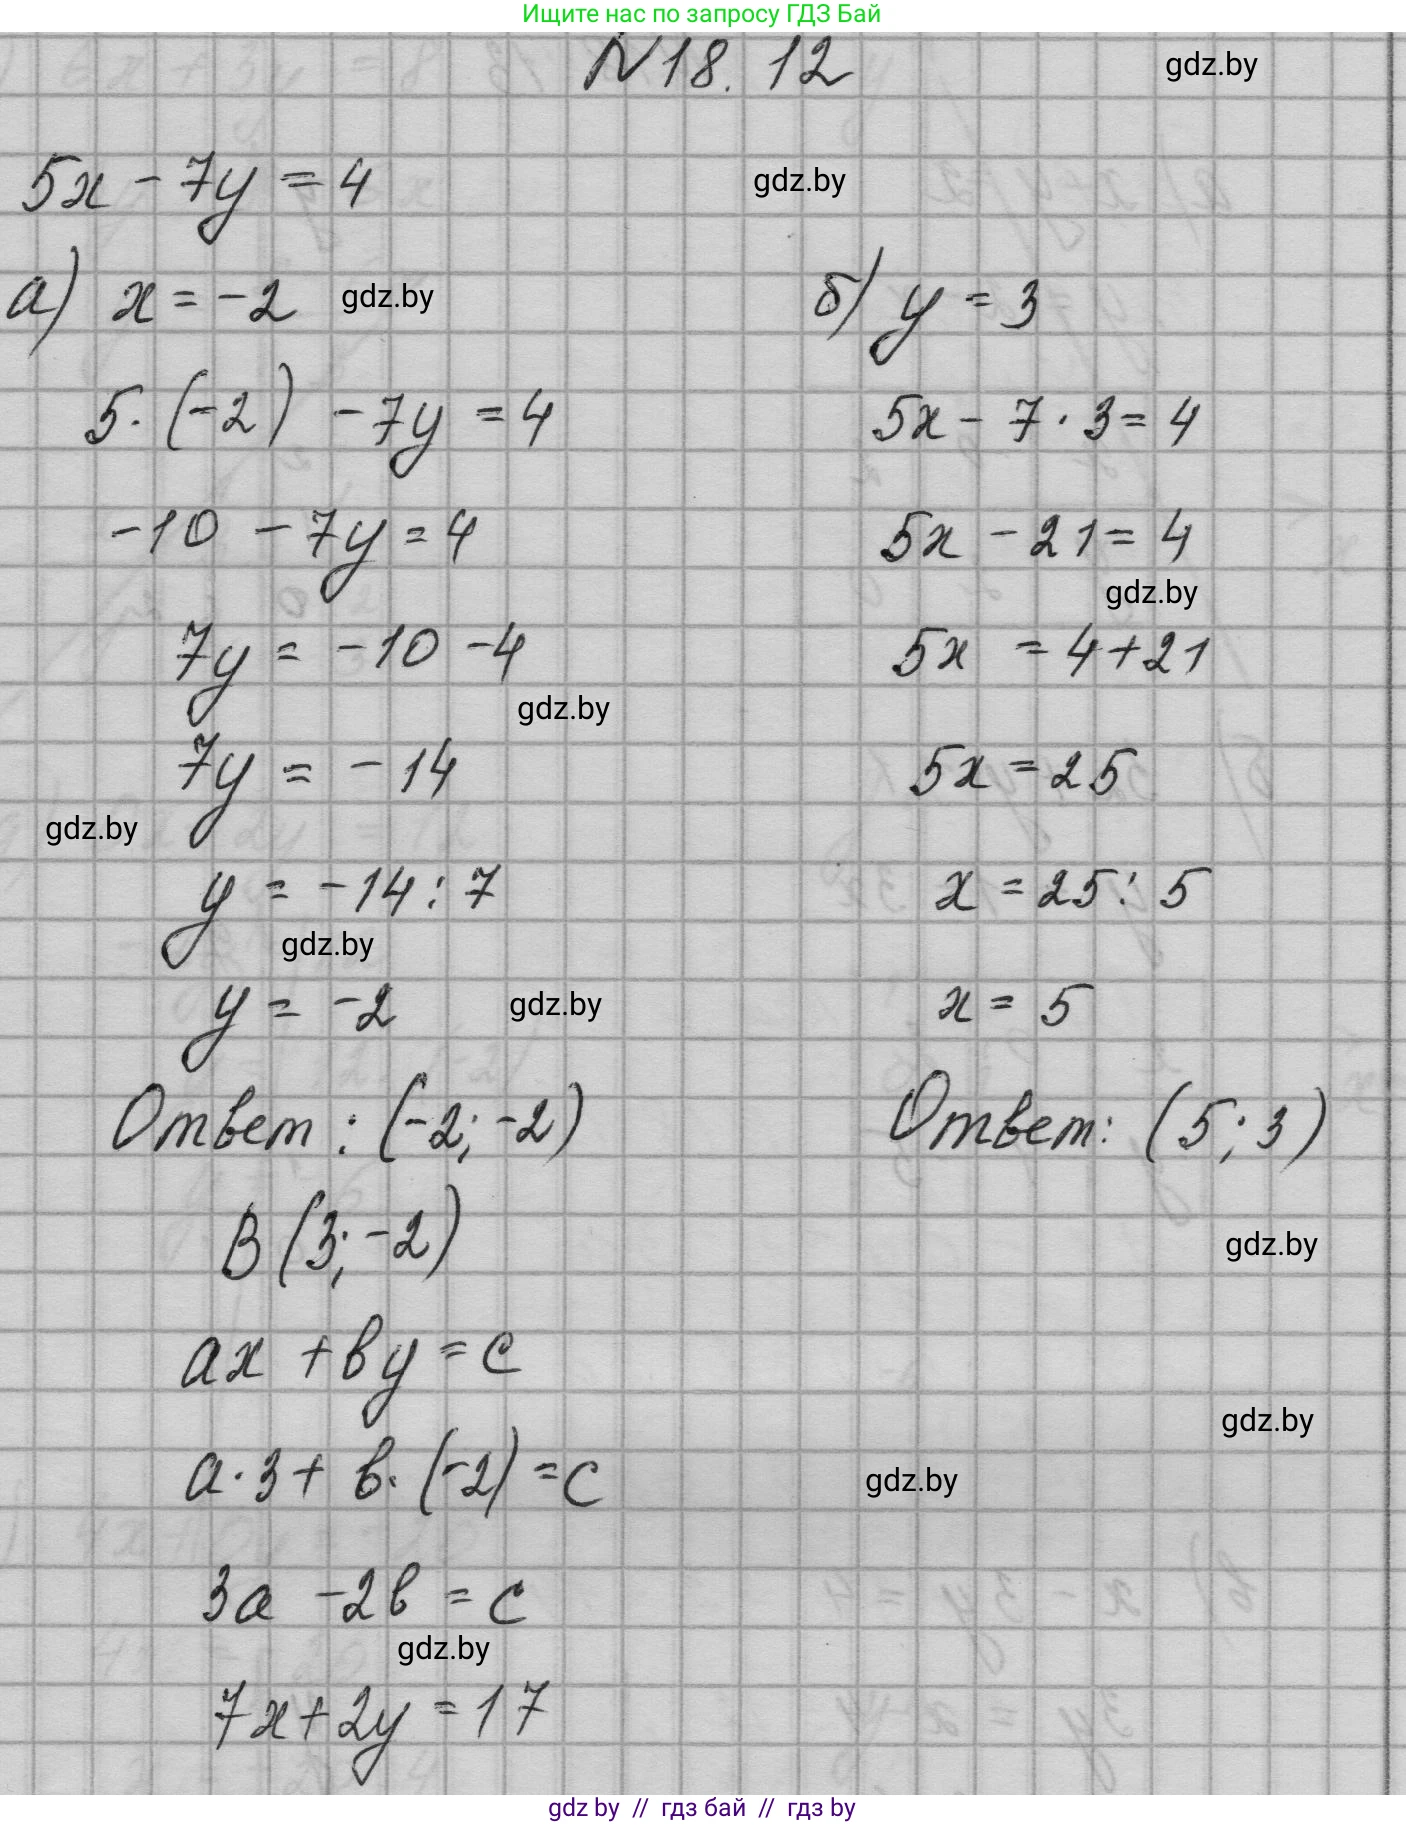 Ищите нас по запросу ГДЗ Бай
N 18. 12
gdz.by
5x - 7y = 4
gdz.by
а) x = -2
gdz.by
5·(-2) - 7y = 4
-10 - 7y = 4
7y = -10 -4
gdz.by
7y = -14
gdz.by
y = -14 : 7
gdz.by
y = -2
gdz.by
Ответ : (-2; -2)
B (3; -2)
ax + by = c
a·3 + b·(-2) = c
3a - 2b = c
gdz.by
7x + 2y = 17
б) y = 3
5x - 7·3 = 4
5x - 21 = 4
gdz.by
5x = 4+21
5x = 25
x = 25 : 5
x = 5
Ответ: (5; 3)
gdz.by
gdz.by
gdz.by
gdz by // гдз бай // гдз by